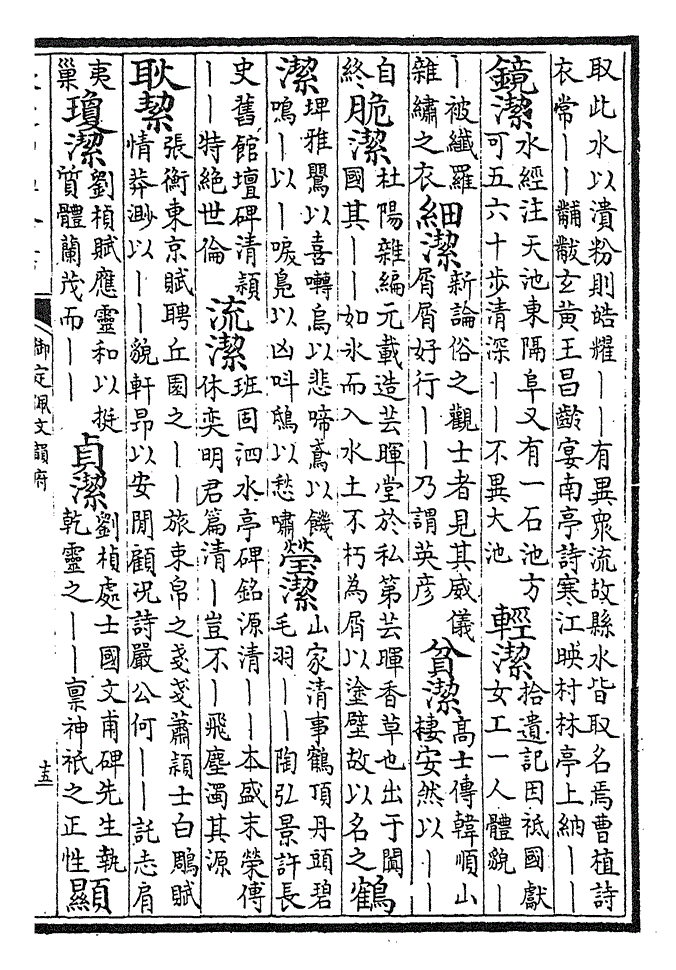 取此水以漬粉則皓耀丨丨有異衆流故縣水皆取名焉曹植詩
衣常丨丨黼黻玄黃王昌齡宴南亭詩寒江映村林亭上納丨丨
鏡潔
水經注天池東隔阜又有一石池方
可五六十步清深丨丨不異大池
輕潔
拾遺記因祗國獻
女工一人體貌丨
丨被纖羅
雜繡之衣
細潔
新論俗之觀士者見其威儀
屑屑好行丨丨乃謂英彦
貧潔
高士傳韓順山
棲安然以丨丨
自
終
脆潔
杜陽雜編元載造芸暉堂於私第芸暉香草也出于闐
國其丨丨如氷而入水土不朽為屑以塗壁故以名之
鶴
潔
埤雅鸎以喜囀烏以悲啼鳶以饑
鳴丨以丨唳鳧以凶叫鴟以愁嘯
瑩潔
山家清事鶴頂丹頭碧
毛羽丨丨陶弘景許長
史舊館壇碑清潁
丨丨特絶世倫
流潔
班固泗水亭碑銘源清丨丨本盛末榮傅
休奕明君篇清丨豈不丨飛塵濁其源
耿潔
張衡東京賦聘丘園之丨丨旅束帛之戔戔蕭潁士白鷴賦
情莽渺以丨丨貌軒昂以安閒顧况詩嚴公何丨丨託志肩
夷
巢
瓊潔
劉楨賦應靈和以挺
質體蘭茂而丨丨
貞潔
劉楨處士國文甫碑先生執
乾靈之丨丨禀神祇之正性
顯
御定佩文韻府
十五